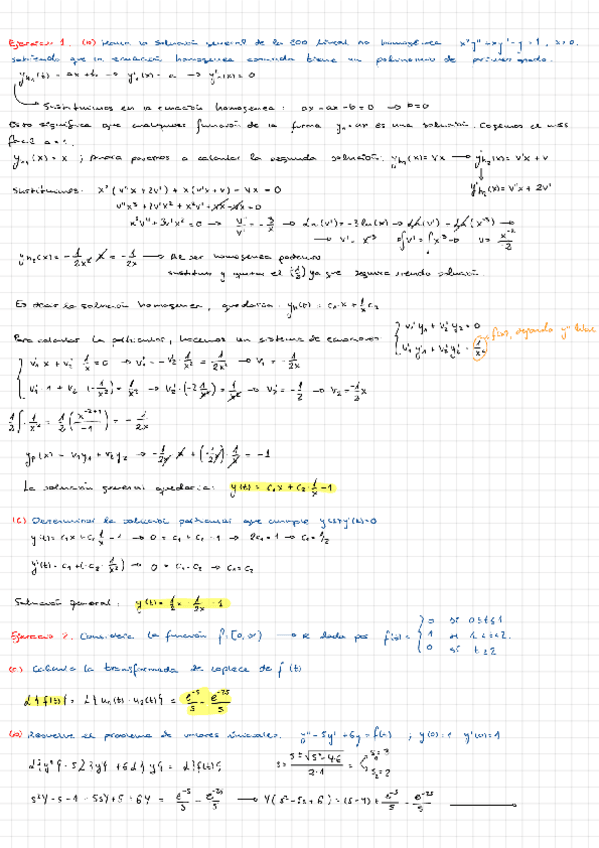 Ejercicio 1. (a) la solución general de la EDO lineal no homogénea x²y'' + xy' - y = 1, x>0.
sabiendo que la ecuación homogénea asociada tiene un polinomio de primer grado.
y'h₁(x) = a → y''(x) = 0
Sustituimos en la ecuación homogénea: ax - ax - b = 0 → b=0
Esto significa que cualquier función de la forma y₁=ax es una solución. Cogemos el más
fácil
yh₁(x) = x ; Ahora pasamos a calcular la segunda solución. yh₂(x) = Vx → y'h₂(x) = V'x + V
y''h₂(x) = V''x + 2V'
Sustituimos: x²(V''x + 2V') + x(V'x + V) - Vx = 0
V''x³ + 2V'x² + x²V' + xV - xV = 0
x³V'' + 3V'x² = 0 → V''/V' = -3/x → Ln(V') = -3 ln(x) → Ln(V') = Ln(x⁻³) →
→ V' = x⁻³ ∫V' = ∫x⁻³ → V = x⁻²/-2
yh₂(x) = -1/2x² · x = -1/2x → Al ser homogénea podemos
sustituir y quitar el (-1/2) ya que seguirá siendo solución.
Es decir la solución homogénea, quedaría: yh(t) = c₁·x + 1/x c₂
Para calcular la particular, hacemos un sistema de ecuaciones
V₁'y₁ + V₂'y₂ = 0
V₁'y'₁ + V₂'y'₂ = 1/x² f(x), dejando y''
V₁'x + V₂' 1/x = 0 → V₁' = -V₂' 1/x² = 1/2x² → V₁ = -1/2x
V₁'·1 + V₂'(-1/x²) = 1/x² → V₂'(-2 1/x²) = 1/x² → V₂' = -1/2 → V₂ = -1/2x
1/2 ∫ 1/x² = 1/2 (x⁻²⁺¹/-1) = -1/2x
yp(x) = V₁y₁ + V₂y₂ → -1/2x · x + (-1/2x) · 1/x = -1
La solución general quedaría: y(t) = c₁x + c₂·1/x - 1
Determinar la solución particular que cumple
y(t) = c₁x + c₂ 1/x - 1 → 0 = c₁ + c₂ - 1 → 2c₁ = 1 → c₁ = 1/2
y'(t) = c₁ + (-c₂·1/x²) → 0 = c₁ - c₂ → c₁ = c₂
Solución general:
Ejercicio 2. Considera la función f: [0,∞) → R dada por f(t) =
0 si 0≤t≤1
1 si 1≤t<2.
0 si t≥2
Calcula la transformada de Laplace de f(t)
L{f(t)} = L{u₁(t) - u₂(t)} = e⁻ˢ/s - e⁻²ˢ/s
Resuelve el problema de valores iniciales. y'' - 5y' + 6y = f(t) ; y(0)=1 y'(0)=1
L{y''} - 5L{y'} + 6L{y} = L{f(t)}
s = 5±√(5²-4·6)/2·1 = s₁=3
s₂=2
s²Y - s - 1 - 5sY + 5 + 6Y = e⁻ˢ/s - e⁻²ˢ/s → Y(s² - 5s + 6) = (s-4) + e⁻ˢ/s - e⁻²ˢ/s